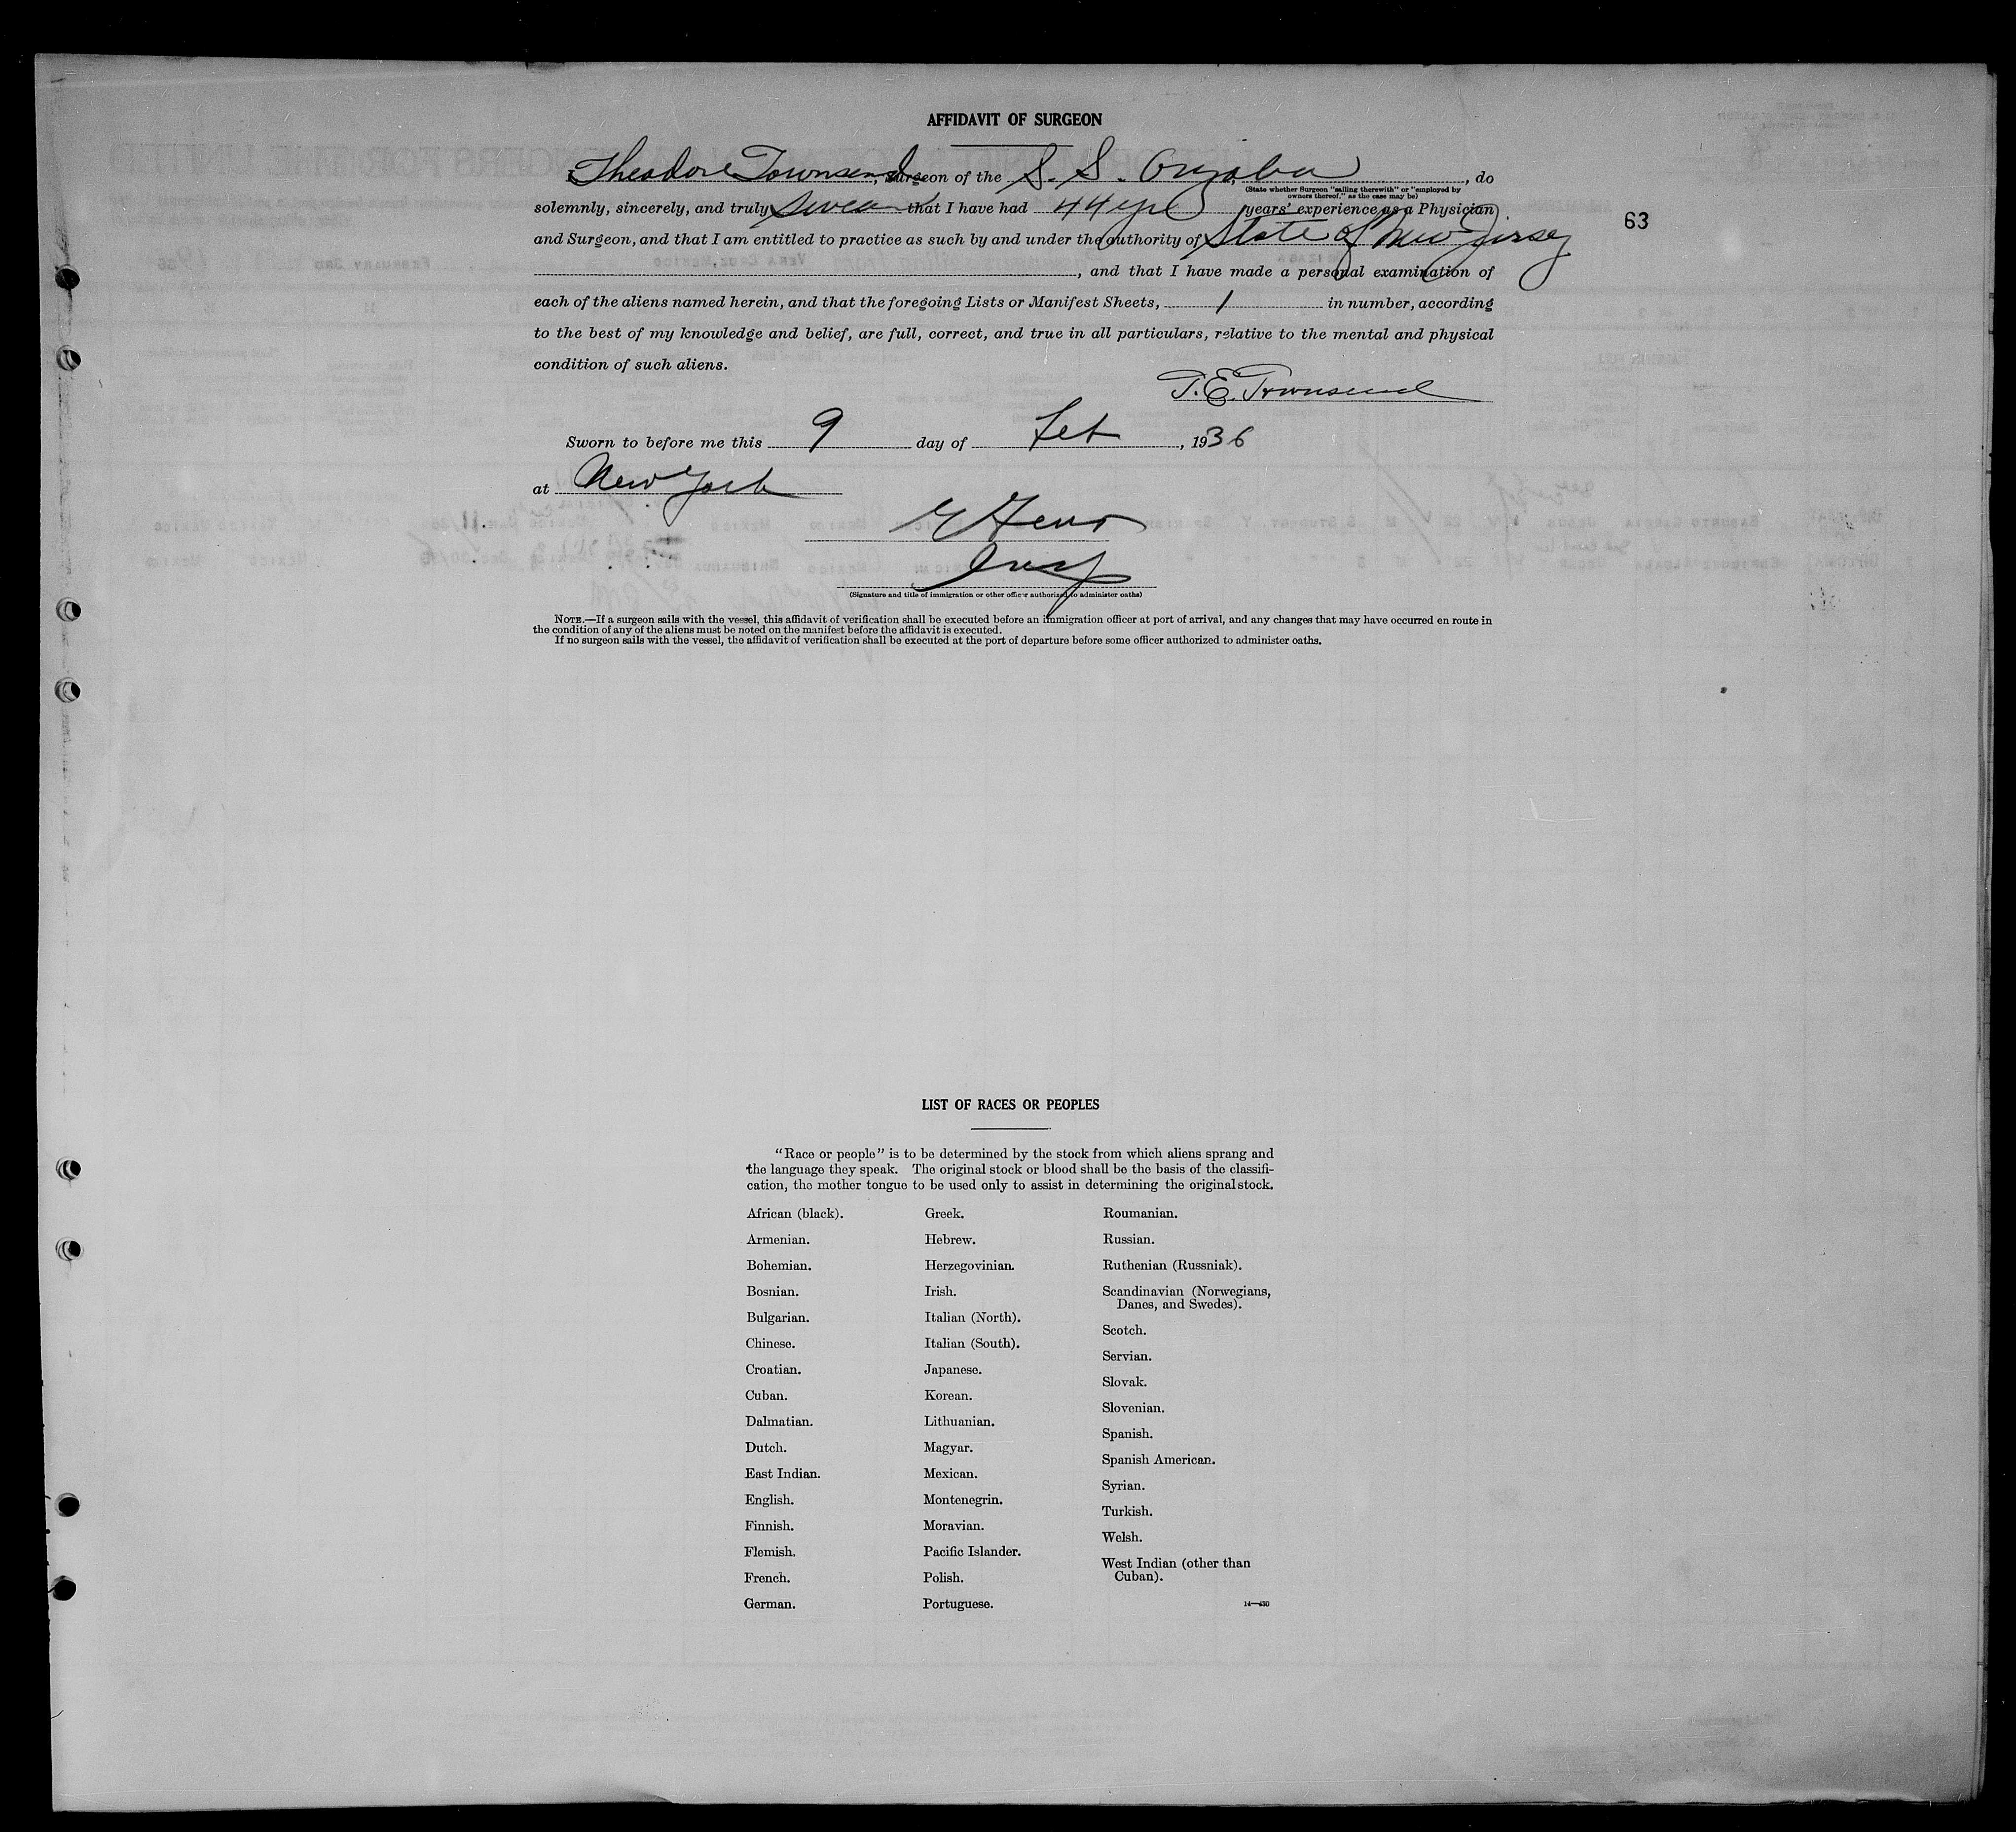 AFFIDAVIT OF SURGEON
Theodore Townsend, Surgeon of the S. S. Orizaba, do
(State whether Surgeon "sailing therewith" or "employed by
owners thereof," as the case may be)
solemnly, sincerely, and truly swear that I have had 44 yrs years' experience as a Physician
63
and Surgeon, and that I am entitled to practice as such by and under the authority of State of New Jersey
, and that I have made a personal examination of
each of the aliens named herein, and that the foregoing Lists or Manifest Sheets, 1 in number, according
to the best of my knowledge and belief, are full, correct, and true in all particulars, relative to the mental and physical
condition of such aliens.
T. E. Townsend
Sworn to before me this 9 day of Feb, 1936
at New York
Insp
(Signature and title of immigration or other officer authorized to administer oaths)
NOTE.—If a surgeon sails with the vessel, this affidavit of verification shall be executed before an immigration officer at port of arrival, and any changes that may have occurred en route in
the condition of any of the aliens must be noted on the manifest before the affidavit is executed.
If no surgeon sails with the vessel, the affidavit of verification shall be executed at the port of departure before some officer authorized to administer oaths.
LIST OF RACES OR PEOPLES
"Race or people" is to be determined by the stock from which aliens sprang and
the language they speak. The original stock or blood shall be the basis of the classifi-
cation, the mother tongue to be used only to assist in determining the original stock.
African (black).
Armenian.
Bohemian.
Bosnian.
Bulgarian.
Chinese.
Croatian.
Cuban.
Dalmatian.
Dutch.
East Indian.
English.
Finnish.
Flemish.
French.
German.
Greek.
Hebrew.
Herzegovinian.
Irish.
Italian (North).
Italian (South).
Japanese.
Korean.
Lithuanian.
Magyar.
Mexican.
Montenegrin.
Moravian.
Pacific Islander.
Polish.
Portuguese.
Roumanian.
Russian.
Ruthenian (Russniak).
Scandinavian (Norwegians,
Danes, and Swedes).
Scotch.
Servian.
Slovak.
Slovenian.
Spanish.
Spanish American.
Syrian.
Turkish.
Welsh.
West Indian (other than
Cuban).
14—430